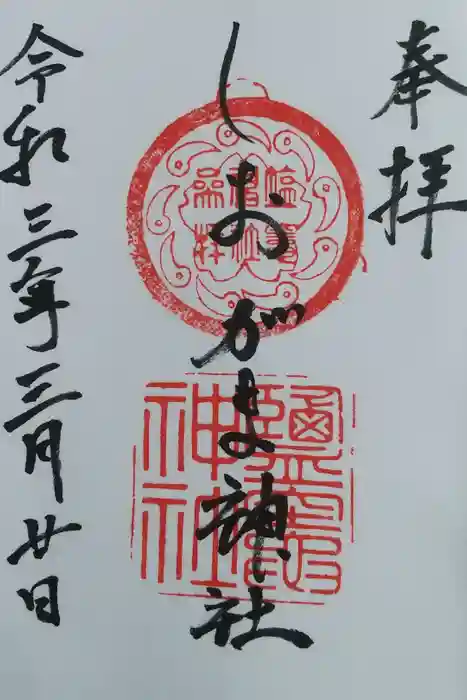 奉拝
しおがま神社
鹽竈神社
令和三年三月廿日